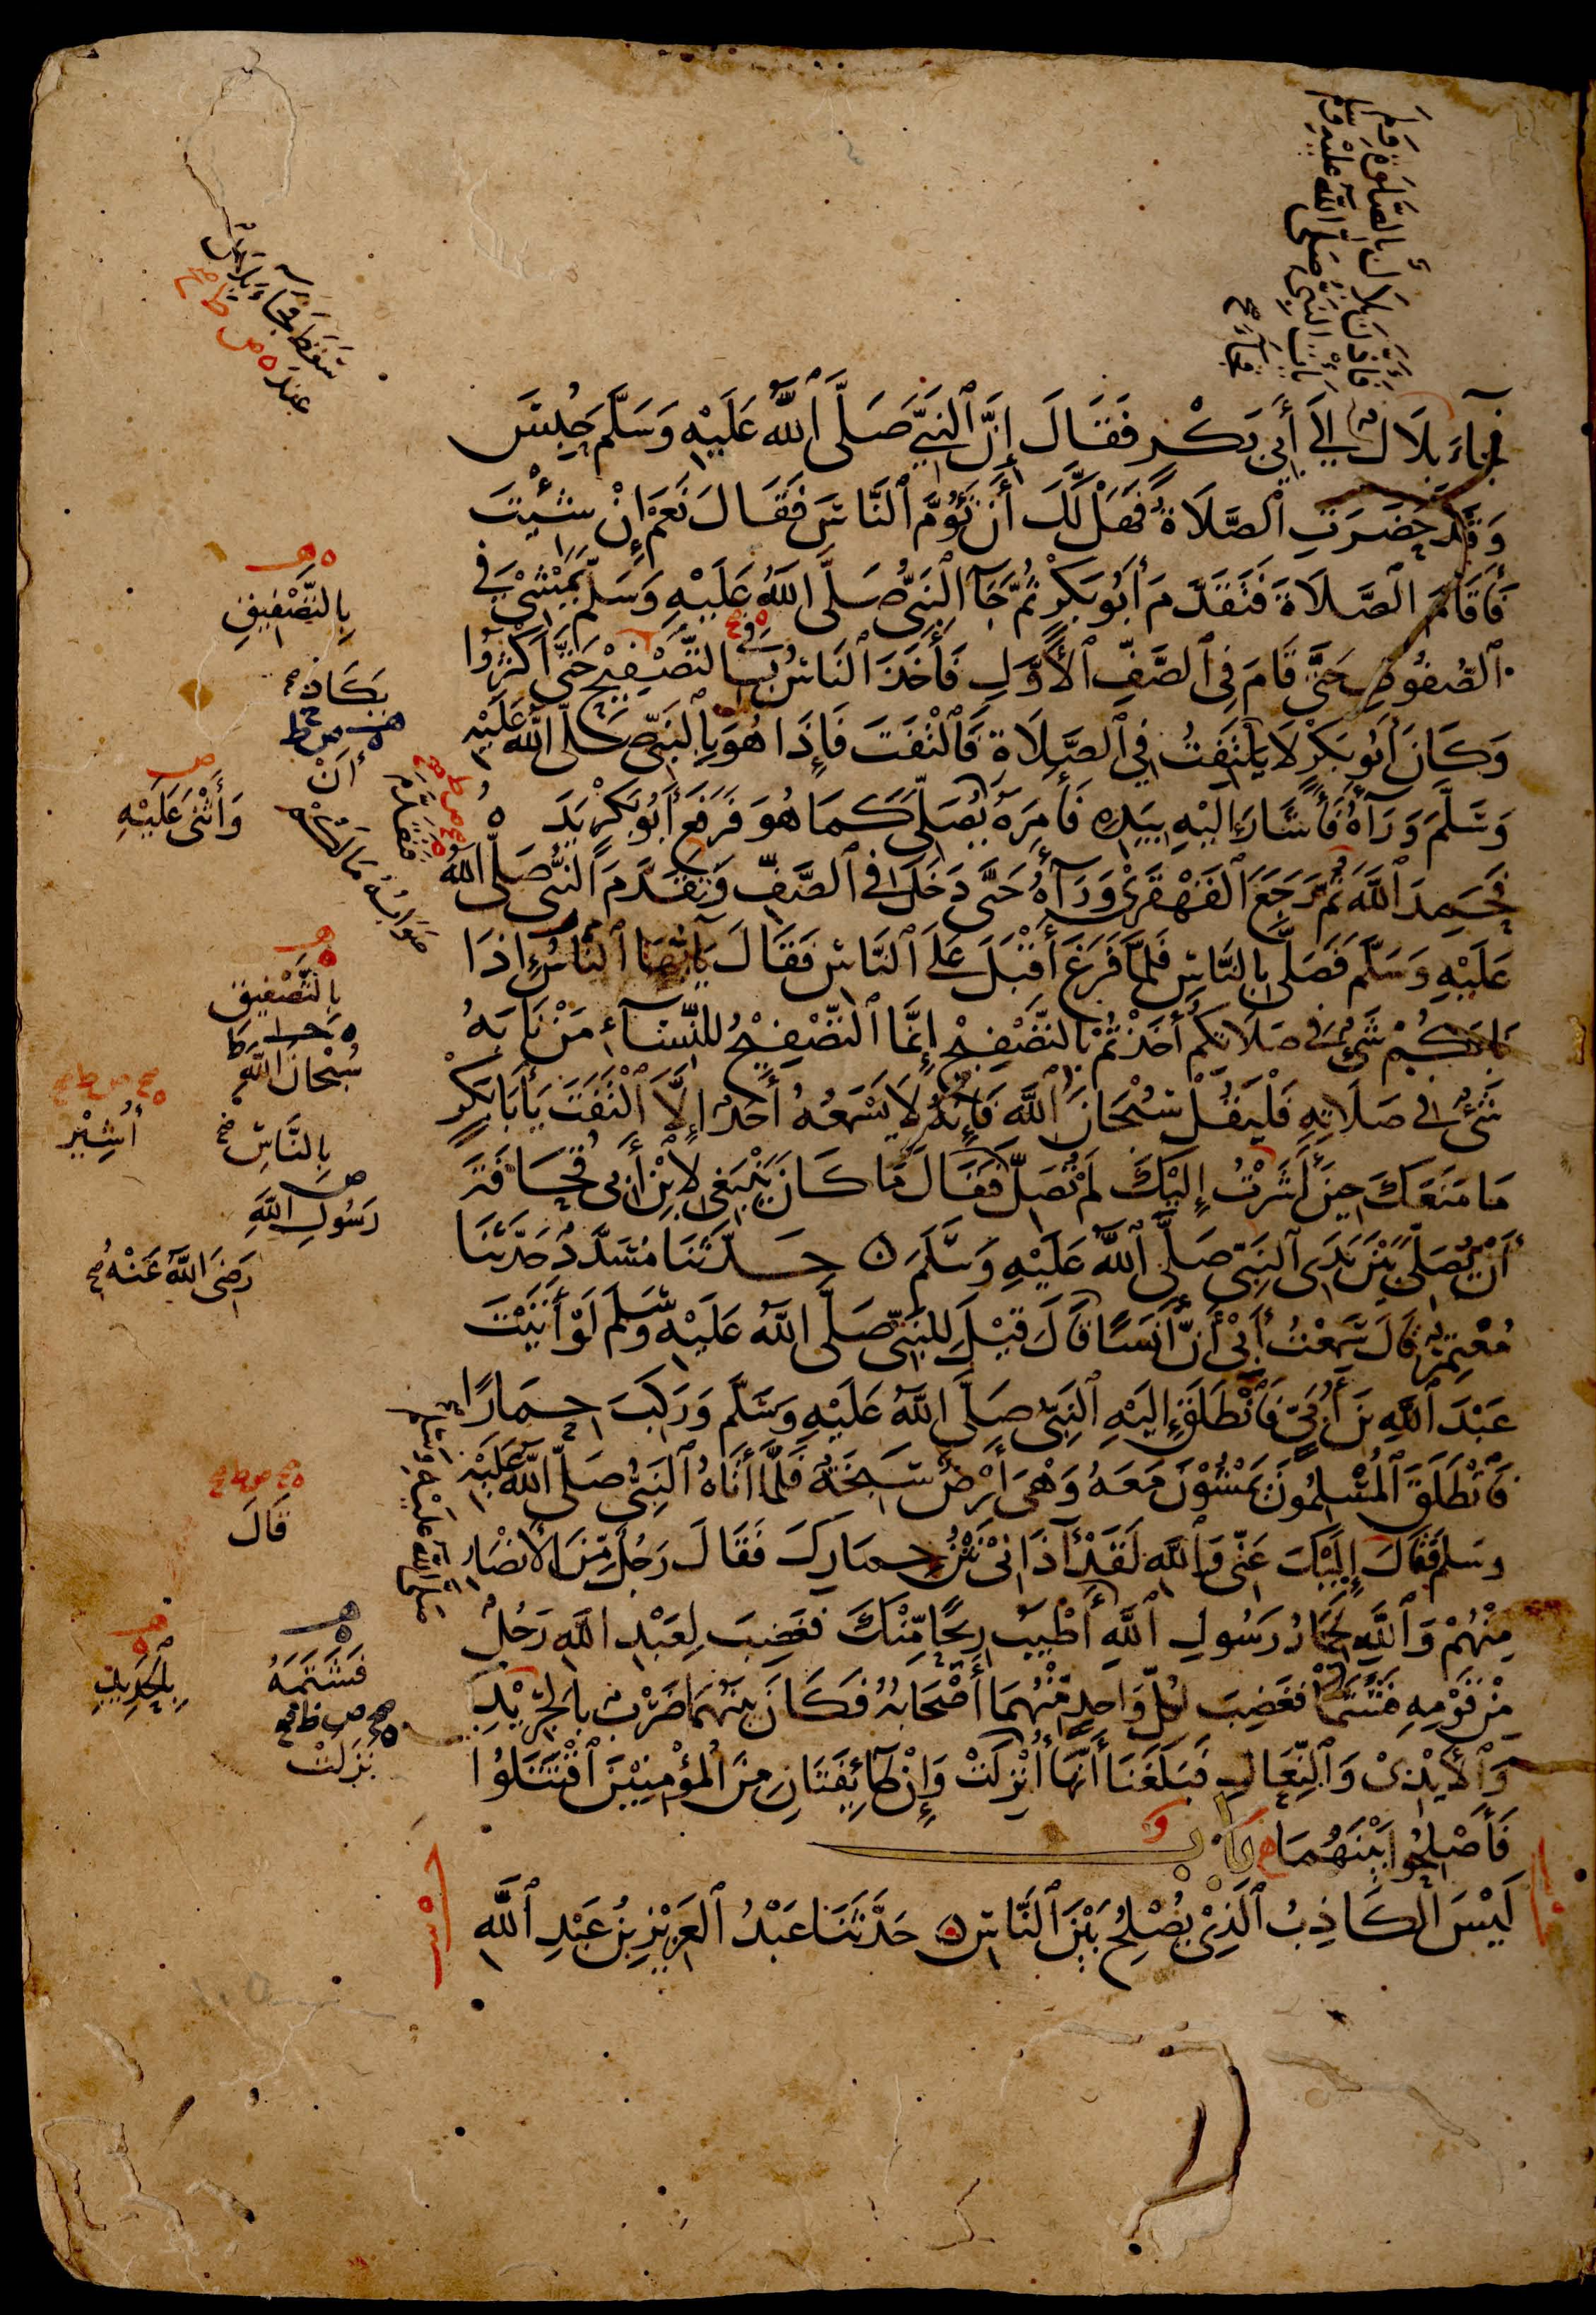 فَأَذَّنَ بِلَالٌ بِالصَّلَوٰةِ وَلَمْ
يَأْتِ النَّبِيُّ صَلَّى اللَّهُ عَلَيْهِ وَسَلَّمَ
فَجَاءَ صح
سَقَطَ فَجَاءَ بِلَالٌ
عِنْدَ ه ص ط
فَجَآءَ بِلَالٌ إِلَى أَبِي بَكْرٍ فَقَالَ إِنَّ ٱلنَّبِيَّ صَلَّى ٱللَّهُ عَلَيْهِ وَسَلَّمَ حُبِسَ
وَقَدْ حَضَرَتِ ٱلصَّلَاةُ فَهَلْ لَّكَ أَنْ تَؤُمَّ ٱلنَّاسَ فَقَالَ نَعَمْ إِنْ شِئْتَ
فَأَقَامَ ٱلصَّلَاةَ فَتَقَدَّمَ أَبُو بَكْرٍ ثُمَّ جَآءَ النَّبِيُّ صَلَّى اللَّهُ عَلَيْهِ وَسَلَّمَ يَمْشِي فِي
ٱلصُّفُوفِ حَتَّى قَامَ فِي ٱلصَّفِّ ٱلْأَوَّلِ فَأَخَذَ ٱلنَّاسُ فِي التَّصْفِيحِ حَتَّى أَكْثَرُوا
وَكَانَ أَبُو بَكْرٍ لَا يَلْتَفِتُ فِي ٱلصَّلَاةِ فَٱلْتَفَتَ فَإِذَا هُوَ بِٱلنَّبِيِّ صَلَّى اللَّهُ عَلَيْهِ
وَسَلَّمَ وَرَآءَهُ فَأَشَارَ إِلَيْهِ بِيَدِهِ فَأَمَرَهُ يُصَلِّي كَمَا هُوَ فَرَفَعَ أَبُو بَكْرٍ يَدَهُ
فَحَمِدَ ٱللَّهَ ثُمَّ رَجَعَ ٱلْقَهْقَرَى وَرَآءَهُ حَتَّى دَخَلَ فِي ٱلصَّفِّ وَتَقَدَّمَ النَّبِيُّ صَلَّى اللَّهُ
عَلَيْهِ وَسَلَّمَ فَصَلَّى بِالنَّاسِ فَلَمَّا فَرَغَ أَقْبَلَ عَلَى ٱلنَّاسِ فَقَالَ يَا أَيُّهَا ٱلنَّاسُ إِذَا
نَابَكُمْ شَيْءٌ فِي صَلَاتِكُمْ أَخَذْتُمْ بِالتَّصْفِيحِ إِنَّمَا ٱلتَّصْفِيحُ لِلنِّسَآءِ مَنْ نَابَهُ
شَيْءٌ فِي صَلَاتِهِ فَلْيَقُلْ سُبْحَانَ ٱللَّهِ فَإِنَّهُ لَا يَسْمَعُهُ أَحَدٌ إِلَّا ٱلْتَفَتَ يَا أَبَا بَكْرٍ
مَا مَنَعَكَ حِينَ أَشَرْتُ إِلَيْكَ لَمْ تُصَلِّ فَقَالَ مَا كَانَ يَنْبَغِي لِابْنِ أَبِي قُحَافَةَ
أَنْ يُصَلِّيَ بَيْنَ يَدَيِ ٱلنَّبِيِّ صَلَّى ٱللَّهُ عَلَيْهِ وَسَلَّمَ ۝ حَدَّثَنَا مُسَدَّدٌ حَدَّثَنَا
مُعْتَمِرٌ قَالَ سَمِعْتُ أَبِي أَنَّ أَنَسًا قَالَ قِيلَ لِلنَّبِيِّ صَلَّى اللَّهُ عَلَيْهِ وَسَلَّمَ لَوْ أَتَيْتَ
عَبْدَ ٱللَّهِ بْنَ أُبَيٍّ فَٱنْطَلَقَ إِلَيْهِ ٱلنَّبِيُّ صَلَّى اللَّهُ عَلَيْهِ وَسَلَّمَ وَرَكِبَ حِمَارًا
فَانْطَلَقَ ٱلْمُسْلِمُونَ يَمْشُونَ مَعَهُ وَهْيَ أَرْضٌ سَبِخَةٌ فَلَمَّا أَتَاهُ ٱلنَّبِيُّ صَلَّى اللَّهُ عَلَيْهِ
وسلم فَقَالَ إِلَيْكَ عَنِّي وَٱللَّهِ لَقَدْ آذَانِي نَتْنُ حِمَارِكَ فَقَالَ رَجُلٌ مِّنَ الْأَنْصَارِ
مِنْهُمْ وَٱللَّهِ لَحِمَارُ رَسُولِ ٱللَّهِ أَطْيَبُ رِيحًا مِّنْكَ فَغَضِبَ لِعَبْدِ اللَّهِ رَجُلٌ
مِنْ قَوْمِهِ فَشَتَمَا فَغَضِبَ لِكُلِّ وَاحِدٍ مِّنْهُمَا أَصْحَابُهُ فَكَانَ بَيْنَهُمَا ضَرْبٌ بِالْجَرِيدِ
وَٱلْأَيْدِي وَٱلنِّعَالِ فَبَلَغَنَا أَنَّهَا أُنْزِلَتْ وَإِنْ طَآئِفَتَانِ مِنَ الْمُؤْمِنِينَ ٱقْتَتَلُوا
فَأَصْلِحُوا بَيْنَهُمَا بَاب
لَيْسَ الْكَاذِبُ ٱلَّذِي يُصْلِحُ بَيْنَ ٱلنَّاسِ ۝ حَدَّثَنَا عَبْدُ ٱلْعَزِيزِ بْنُ عَبْدِ ٱللَّهِ
بِالتَّصْفِيقِ
يَكَادُ
وَأَثْنَى عَلَيْهِ
فَتَقَدَّمَ
بِالتَّصْفِيقِ
سُبْحَانَ اللَّهِ
أُشِيرَ
بِالنَّاسِ
رَسُولِ اللَّهِ
رَضِيَ اللَّهُ عَنْهُ
صَلَّى اللَّهُ عَلَيْهِ وَسَلَّمَ
قَالَ
فَشَتَمَهُ
بِالْحَدِيدِ
نَزَلَتْ